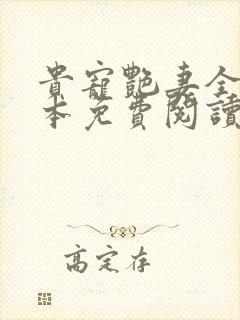 貴寵艷妻全
本免費閱讀
高定存